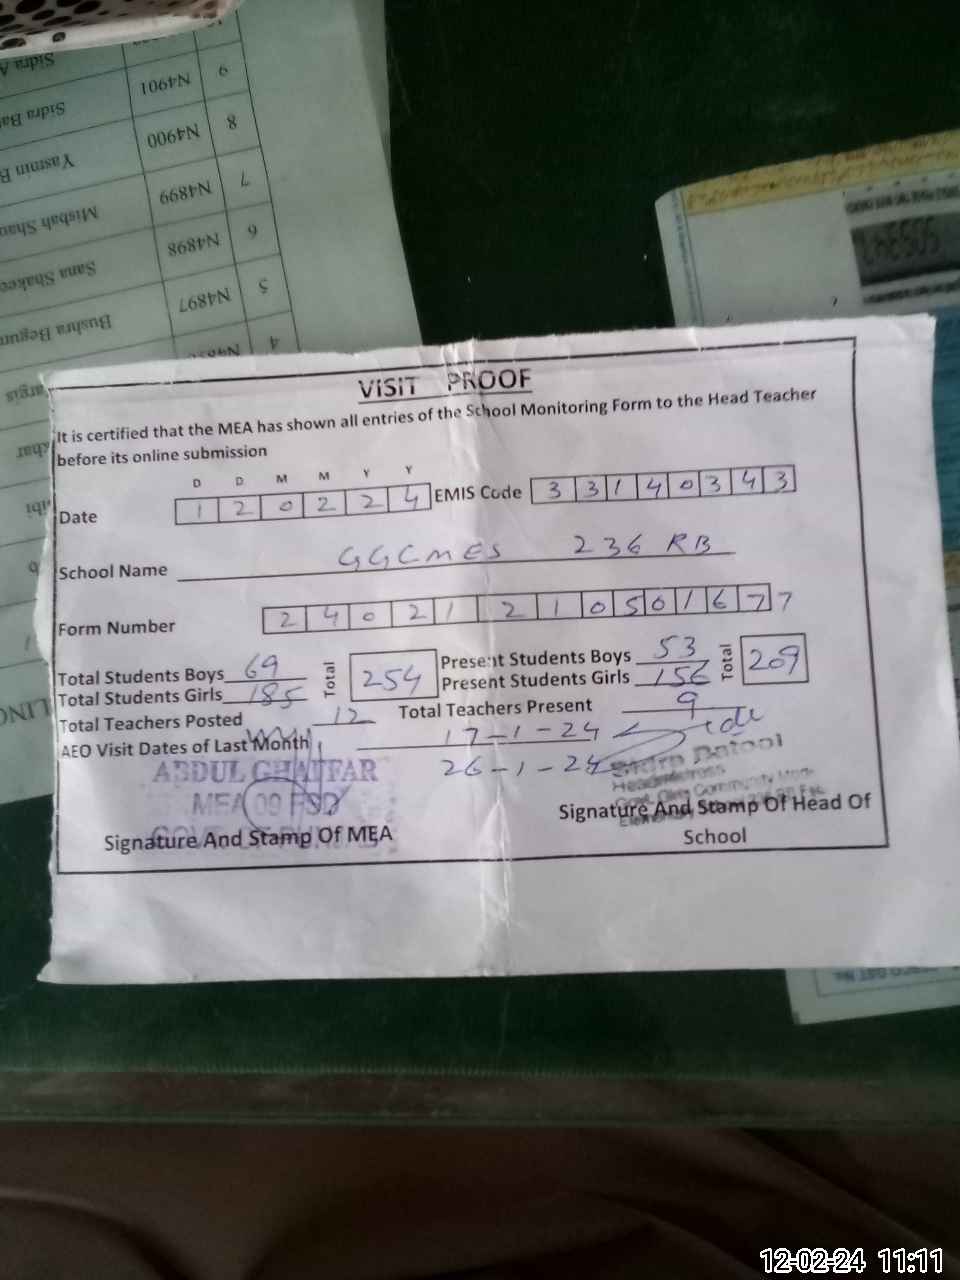 Sidra A
9 N4901 Sidra Ba
8 N4900 Yasmin B
7 N4899 Misbah Sha
6 N4898 Sana Shakee
5 N4897 Bushra Begum
4
VISIT PROOF
It is certified that the MEA has shown all entries of the School Monitoring Form to the Head Teacher
before its online submission
D D M M Y Y
Date 1 2 0 2 2 4 EMIS Code 3 3 1 4 0 3 4 3
School Name GGCMES 236 RB
Form Number 2 4 0 2 1 2 1 0 5 0 1 6 7 7
Total Students Boys 69 Total 254 Present Students Boys 53 Total 209
Total Students Girls 185 Present Students Girls 156
Total Teachers Posted 12 Total Teachers Present 9
AEO Visit Dates of Last Month 17-1-24
26-1-24
ABDUL GHAFFAR
MEA 09 FSD
Sidra Batool
Headmistress
Govt. Girls Community Model
Signature And Stamp Of MEA
Signature And Stamp Of Head Of
School
12-02-24 11:11